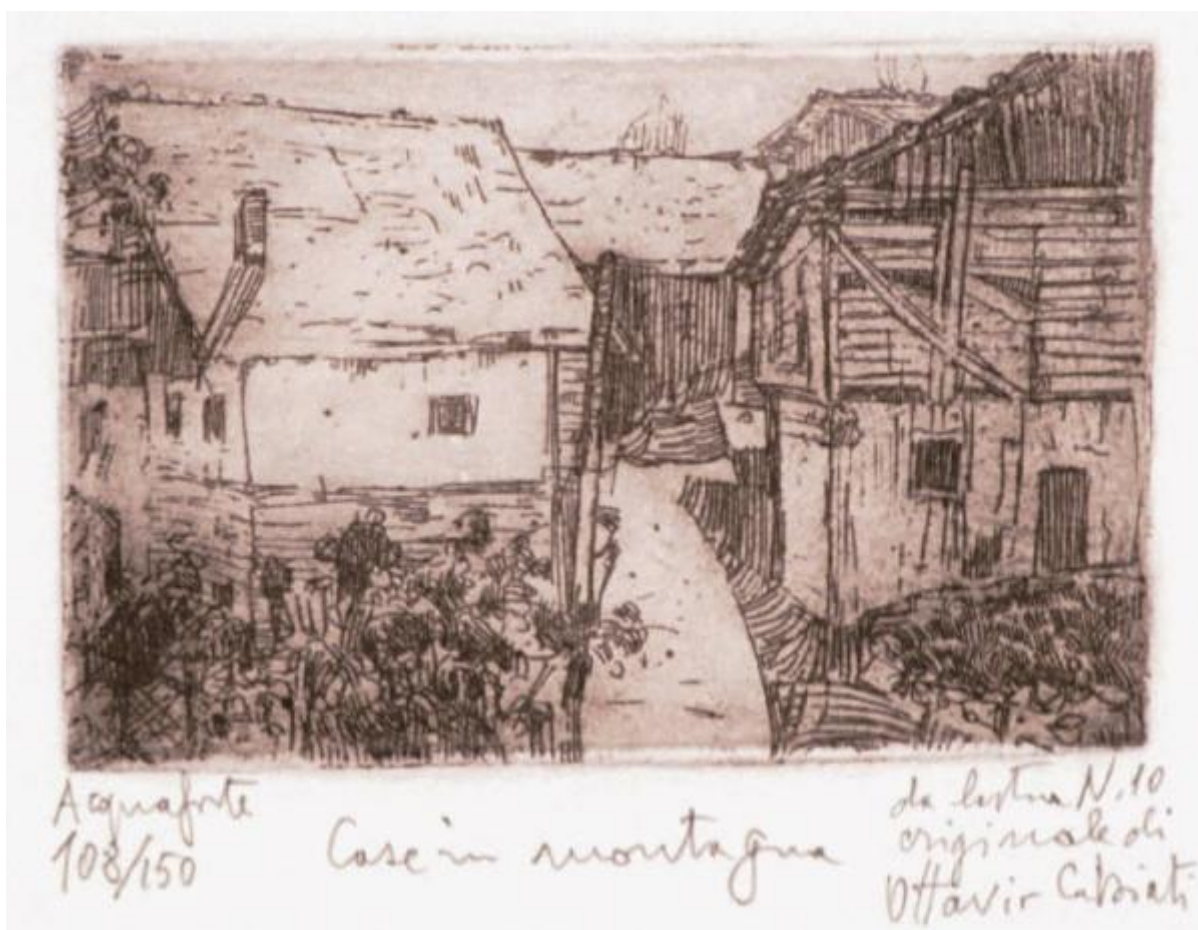 Acquaforte
108/150
Case in montagna
da lastra N.10
originale di
Ottavio Cabiati